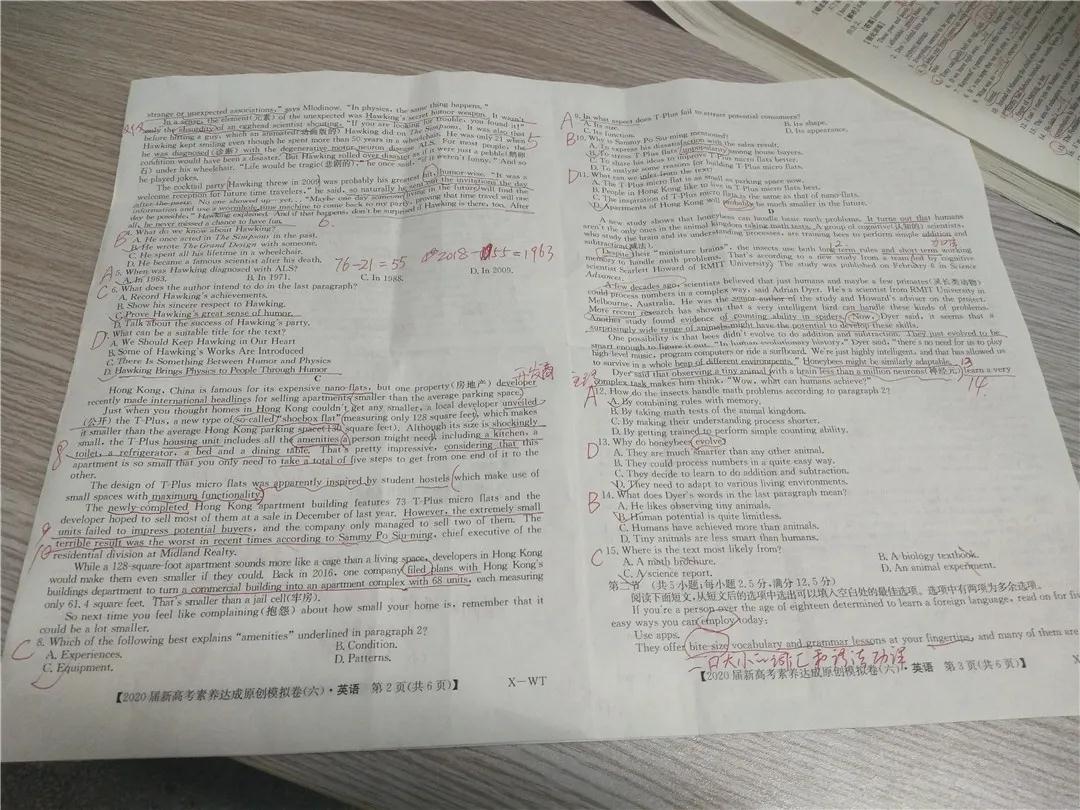 strange or unexpected associations," says Mlodinow. "In physics, the same thing happens."
In a sense, the element(元素) of the unexpected was Hawking's secret humor weapon. It wasn't
only the absurdity of an egghead scientist shouting, "If you are looking for trouble, you found it!"
before hitting a guy, which an animated(动画版的) Hawking did on The Simpsons. It was also that
Hawking kept smiling even though he spent more than 50 years in a wheelchair. He was only 21 when
he was diagnosed(诊断) with the degenerative motor neuron disease ALS. For most people, the
condition would have been a disaster. But Hawking rolled over disaster as if it were just a pebble(鹅卵
石) under his wheelchair. "Life would be tragic(悲剧的)," he once said, "if it weren't funny." And so
he played jokes.
The cocktail party Hawking threw in 2009 was probably his greatest hit, humor-wise. "It was a
welcome reception for future time travelers," he said, so naturally he sent out the invitations the day
after the party. No one showed up—yet. "Maybe one day someone living in the future will find the
information and use a wormhole time machine to come back to my party, proving that time travel will one
day be possible," Hawking explained. And if that happens, don't be surprised if Hawking is there, too. After
all, he never missed a chance to have fun.
5
6.
B 4. What do we know about Hawking?
A. He once acted in The Simpson in the past.
B. He wrote The Grand Design with someone.
C. He spent all his lifetime in a wheelchair.
D. He became a famous scientist after his death.
76-21=55
2018-55=1963
A 5. When was Hawking diagnosed with ALS?
A. In 1963.
B. In 1971.
C. In 1988.
D. In 2009.
C 6. What does the author intend to do in the last paragraph?
A. Record Hawking's achievements.
B. Show his sincere respect to Hawking.
C. Prove Hawking's great sense of humor.
D. Talk about the success of Hawking's party.
D 7. What can be a suitable title for the text?
A. We Should Keep Hawking in Our Heart
B. Some of Hawking's Works Are Introduced
C. There Is Something Between Humor and Physics
D. Hawking Brings Physics to People Through Humor
C
开发商
Hong Kong, China is famous for its expensive nano-flats, but one property(房地产) developer
recently made international headlines for selling apartments smaller than the average parking space.
Just when you thought homes in Hong Kong couldn't get any smaller, a local developer unveiled
(公开) the T-Plus, a new type of so-called "shoebox flat" measuring only 128 square feet, which makes
it smaller than the average Hong Kong parking space(130 square feet). Although its size is shockingly
small, the T-Plus housing unit includes all the amenities a person might need, including a kitchen, a
toilet, a refrigerator, a bed and a dining table. That's pretty impressive, considering that this
apartment is so small that you only need to take a total of five steps to get from one end of it to the
other.
8
The design of T-Plus micro flats was apparently inspired by student hostels which make use of
small spaces with maximum functionality.
The newly-completed Hong Kong apartment building features 73 T-Plus micro flats and the
developer hoped to sell most of them at a sale in December of last year. However, the extremely small
units failed to impress potential buyers, and the company only managed to sell two of them. The
terrible result was the worst in recent times according to Sammy Po Siu-ming, chief executive of the
residential division at Midland Realty.
9
10
While a 128-square-foot apartment sounds more like a cage than a living space, developers in Hong Kong
would make them even smaller if they could. Back in 2016, one company filed plans with Hong Kong's
buildings department to turn a commercial building into an apartment complex with 68 units, each measuring
only 61.4 square feet. That's smaller than a jail cell(牢房).
So next time you feel like complaining(抱怨) about how small your home is, remember that it
could be a lot smaller.
C 8. Which of the following best explains "amenities" underlined in paragraph 2?
A. Experiences.
B. Condition.
C. Equipment.
D. Patterns.
【2020届新高考素养达成原创模拟卷(六)·英语 第2页(共6页)】
X-WT
A 9. In what aspect does T-Plus fail to attract potential consumers?
A. Its size.
B. Its shape.
C. Its function.
D. Its appearance.
B 10. Why is Sammy Po Siu-ming mentioned?
A. To express his dissatisfaction with the sales result.
B. To stress T-Plus flats' unpopularity among house buyers.
C. To share his ideas to improve T-Plus micro flats better.
D. To analyze some reasons for building T-Plus micro flats.
D 11. What can we infer from the text?
A. The T-Plus micro flat is as small as parking space now.
B. People in Hong Kong like to live in T-Plus micro flats best.
C. The inspiration of T-Plus micro flats is the same as that of nano-flats.
D. Apartments of Hong Kong will probably be much smaller in the future.
D
A new study shows that honeybees can handle basic math problems. It turns out that humans
aren't the only ones in the animal kingdom taking math tests. A group of cognitive(认知的) scientists,
who study the brain and its understanding processes, are training bees to perform simple addition and
subtraction(减法).
12.
加法
Despite their "miniature brains", the insects use both long-term rules and short-term working
memory to handle math problems. That's according to a new study from a team led by cognitive
scientist Scarlett Howard of RMIT University. The study was published on February 6 in Science
Advances.
A few decades ago, scientists believed that just humans and maybe a few primates(灵长类动物)
could process numbers in a complex way, said Adrian Dyer. He's a scientist from RMIT University in
Melbourne, Australia. He was the senior author of the study and Howard's adviser on the project.
More recent research has shown that a very intelligent bird can handle these kinds of problems.
Another study found evidence of counting ability in spiders. Now, Dyer said, it seems that a
surprisingly wide range of animals might have the potential to develop these skills.
One possibility is that bees didn't evolve to do addition and subtraction. They just evolved to be
smart enough to figure it out. "In human evolutionary history," Dyer said, "there's no need for us to play
high-level music, program computers or ride a surfboard. We're just highly intelligent, and that has allowed us
to survive in a whole heap of different environments." Honeybees might be similarly adaptable.
13
Dyer said that observing a tiny animal with a brain less than a million neurons(神经元) learn a very
complex task makes him think, "Wow, what can humans achieve?"
14.
A 12. How do the insects handle math problems according to paragraph 2?
A. By combining rules with memory.
B. By taking math tests of the animal kingdom.
C. By making their understanding process shorter.
D. By getting trained to perform simple counting ability.
D 13. Why do honeybees evolve?
A. They are much smarter than any other animal.
B. They could process numbers in a quite easy way.
C. They decide to learn to do addition and subtraction.
D. They need to adapt to various living environments.
B 14. What does Dyer's words in the last paragraph mean?
A. He likes observing tiny animals.
B. Human potential is quite limitless.
C. Humans have achieved more than animals.
D. Tiny animals are less smart than humans.
C 15. Where is the text most likely from?
A. A math brochure.
B. A biology textbook.
C. A science report.
D. An animal experiment.
第二节 (共5小题;每小题2.5分,满分12.5分)
阅读下面短文,从短文后的选项中选出可以填入空白处的最佳选项。选项中有两项为多余选项。
If you're a person over the age of eighteen determined to learn a foreign language, read on for five
easy ways you can employ today:
Use apps.
They offer bite-size vocabulary and grammar lessons at your fingertips, and many of them are
一口大小 词汇和语法功课
【2020届新高考素养达成原创模拟卷(六)·英语 第3页(共6页)】